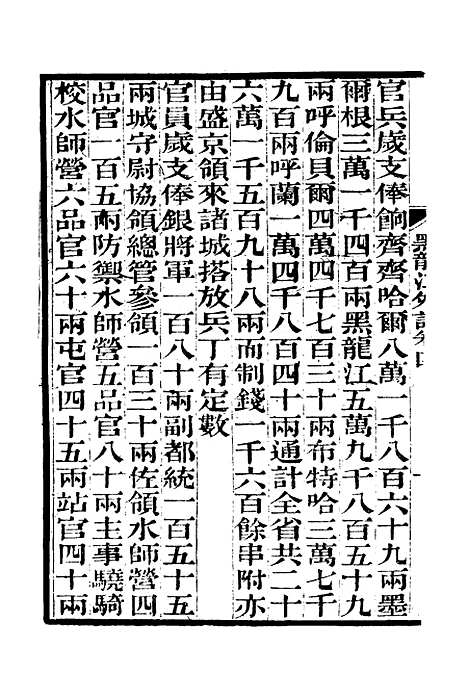 黑龍江外記卷四
官兵歲支俸餉齊齊哈爾八萬一千八百六十九兩墨
爾根三萬一千四百兩黑龍江五萬九千八百五十九
兩呼倫貝爾四萬四千七百三十兩布特哈三萬七千
九百兩呼蘭一萬四千八百四十兩通計全省共二十
六萬一千五百九十八兩而制錢一千六百餘串附亦
由盛京領來諸城搭放兵丁有定數
官員歲支俸銀將軍一百八十兩副都統一百五十五
兩城守尉協領總管參領一百三十兩佐領水師營四
品官一百五兩防禦水師營五品官八十兩主事驍騎
校水師營六品官六十兩屯官四十五兩站官四十兩